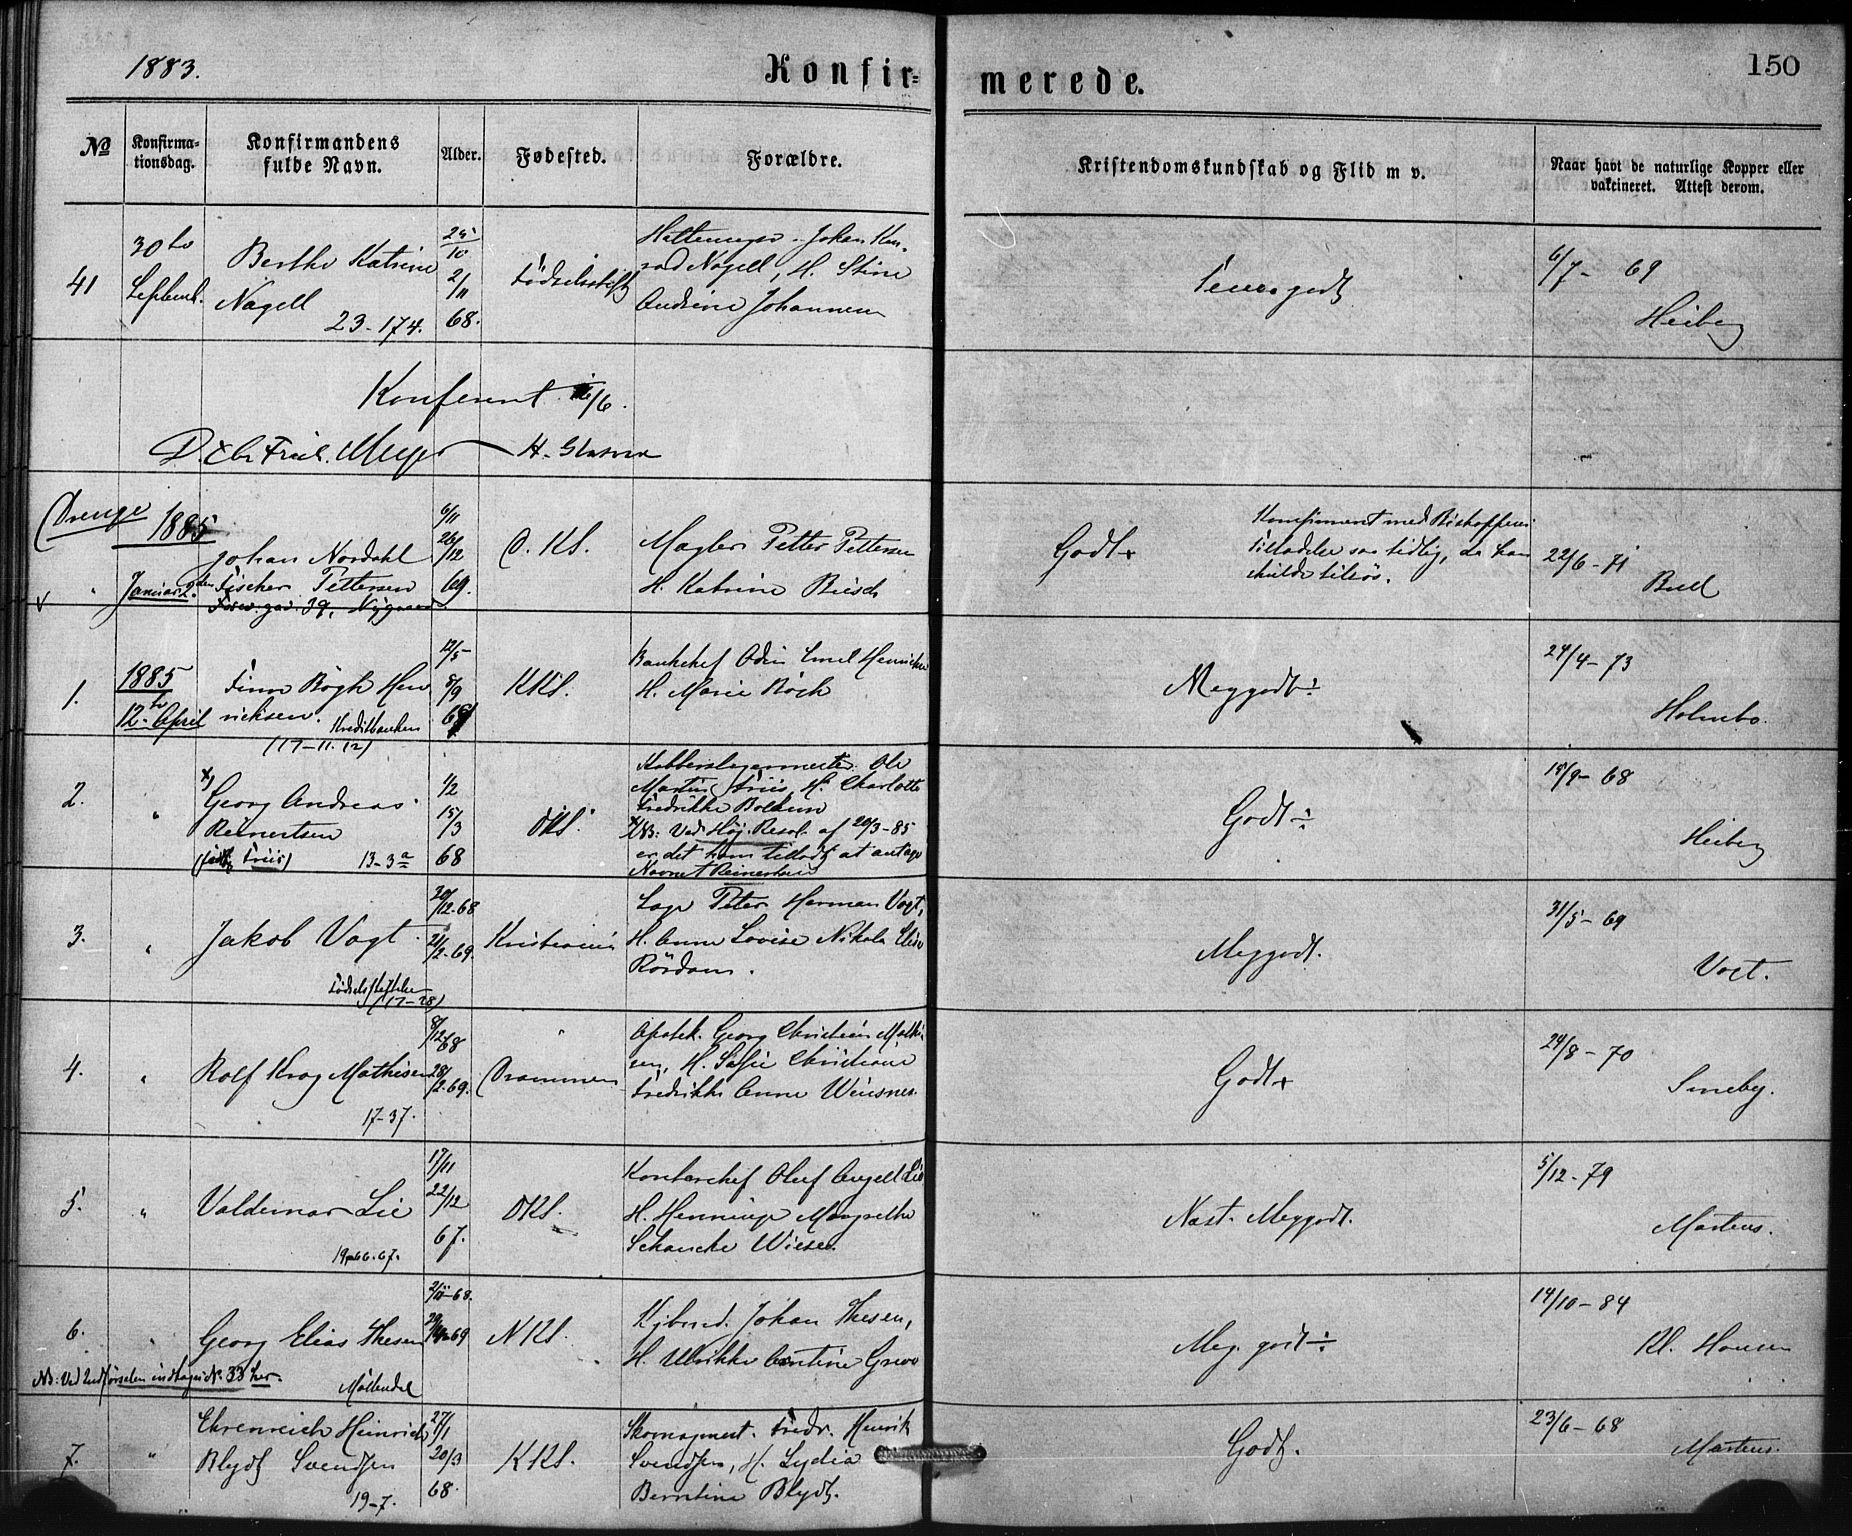 1883.
Konfir-
merede.
150
No
Konfirma-
tionsdag.
Konfirmandens
fulde Navn.
Alder.
Fødested.
Forældre.
Kristendomskundskab og Flid m v.
Naar havt de naturlige Kopper eller
vakcineret. Attest derom.
41
30te
Septemb.
Berthe Katrine
Nagell
23-174.
25/10
2/11
68.
Fødselsstift
Johan Kon-
rad Nagell, H. Stine
Andrine Johannesen
6/7 - 69
Heiberg
Konferert 16/6.
Meyer
Drenge
1885
Januar 2den
Johan Nordahl
Fischer Pettersen
39, Nygaard
6/11
26/12
69.
D. Ks.
Mægler Petter Pettersen
H. Katrine Büsch
Godt+
Konfirmeret med Biskoppens
Tilladelse saa tidlig, da han
skulde tilsøs.
22/6 - 71
Bull
1.
1885
12te April
Finn Bøgh Hen
richsen.
Kreditbanken
(17-11.12)
12/5
8/9
69
KKs.
Bankchef Odin Emil Henrichsen
H. Marie Bøgh
Meggodt÷
24/4 - 73
Holmbo.
2.
"
x)
Georg Andreas
Reinertsen
(født Friis)
13-3a
1/2
15/3
68
DKs.
Kobberslagermester Ole
Martin Friis, H. Charlotte
Fredrikke Boldum
x) NB: Ved Høj. Resol. af 20/3-85
er det ham tilladt at antage
Navnet Reinertsen
Godt÷
15/9 - 68
Heiberg
3.
"
Jakob Vogt
Fødselsstiftelsen
(17-28)
20/12-68
21/2-69.
Kristiania
Læge Peter Herman Vogt,
H. Anne Lovise Nikola Elise
Rördam.
Meggodt.
31/5 - 69
Vogt.
4.
"
Rolf Krog Mathisen
17-37.
8/12 68
28/2-69.
Drammen
Apotek. Georg Christian Mathi
sen, H. Sofie Christiane
Fredrikke Anne Weisner.
Godt+
24/8 - 70
Smeby.
5.
"
Valdemar Lie
17/11
22/12
67.
DKs.
Kontorchef Oluf Angell Lie
H. Henninge Margrethe
Schancke Wiese.
Næst. Meggodt.
5/12 - 79
Martens.
6.
"
Georg Elias Thesen
NB: Ved Indførselen indtages No. 33 her.
Møllendal
2/11-68.
NKs.
Kjbmd. Johan Thesen,
H. Ulrikke Grove
Meg. godt÷
14/10 - 84
Kl. Hansen
7.
"
Ehrenreich Heinrich
Blydt Svendsen
19-7.
27/1
20/3
68.
KKs.
Skomagmest. Fredr. Henrik
Svendsen, H. Lydia
Berntine Blydt.
Godt.
23/6 - 68
Martens.